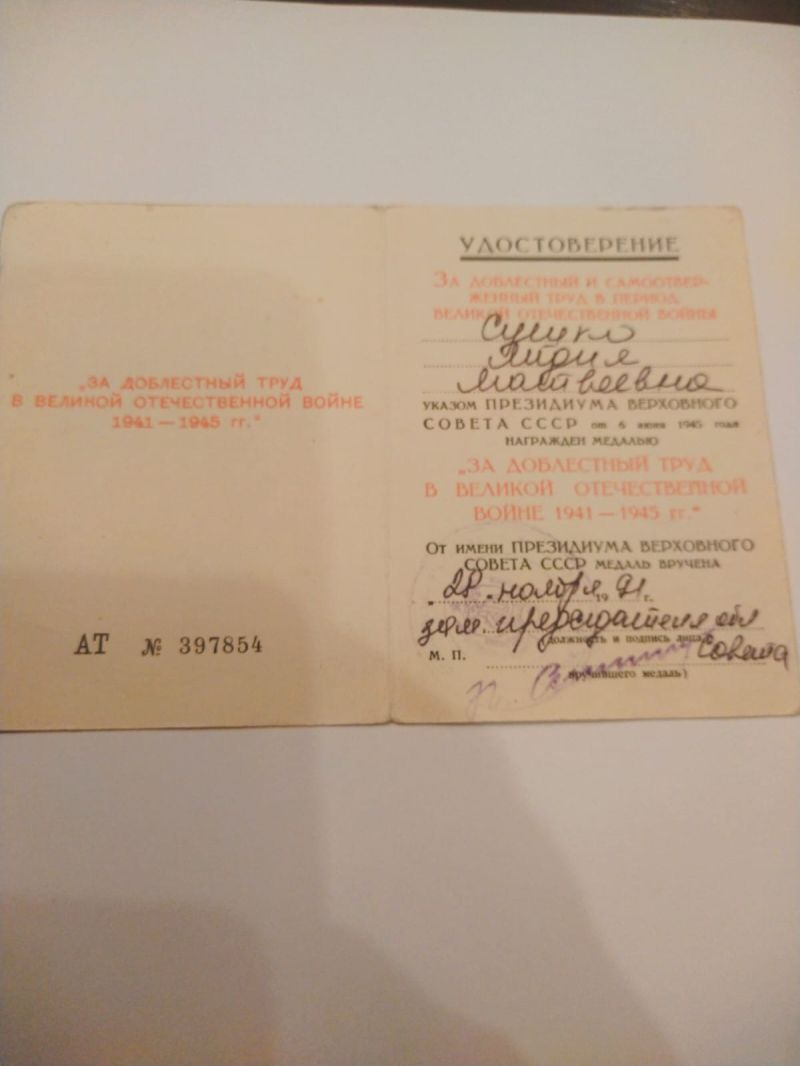 „ЗА ДОБЛЕСТНЫЙ ТРУД
В ВЕЛИКОЙ ОТЕЧЕСТВЕННОЙ ВОЙНЕ
1941 — 1945 гг."
АТ № 397854
УДОСТОВЕРЕНИЕ
ЗА ДОБЛЕСТНЫЙ И САМООТВЕР-
ЖЕННЫЙ ТРУД В ПЕРИОД
ВЕЛИКОЙ ОТЕЧЕСТВЕННОЙ ВОЙНЫ
Лидия
Матвеевна
УКАЗОМ ПРЕЗИДИУМА ВЕРХОВНОГО
СОВЕТА СССР от 6 июня 1945 года
НАГРАЖДЕН МЕДАЛЬЮ
„ЗА ДОБЛЕСТНЫЙ ТРУД
В ВЕЛИКОЙ ОТЕЧЕСТВЕННОЙ
ВОЙНЕ 1941 — 1945 гг."
От имени ПРЕЗИДИУМА ВЕРХОВНОГО
СОВЕТА СССР МЕДАЛЬ ВРУЧЕНА
„28" ноября 1991 г.
зам. председателя обл
(должность и подпись лица,
Совета
М. П.
вручившего медаль)